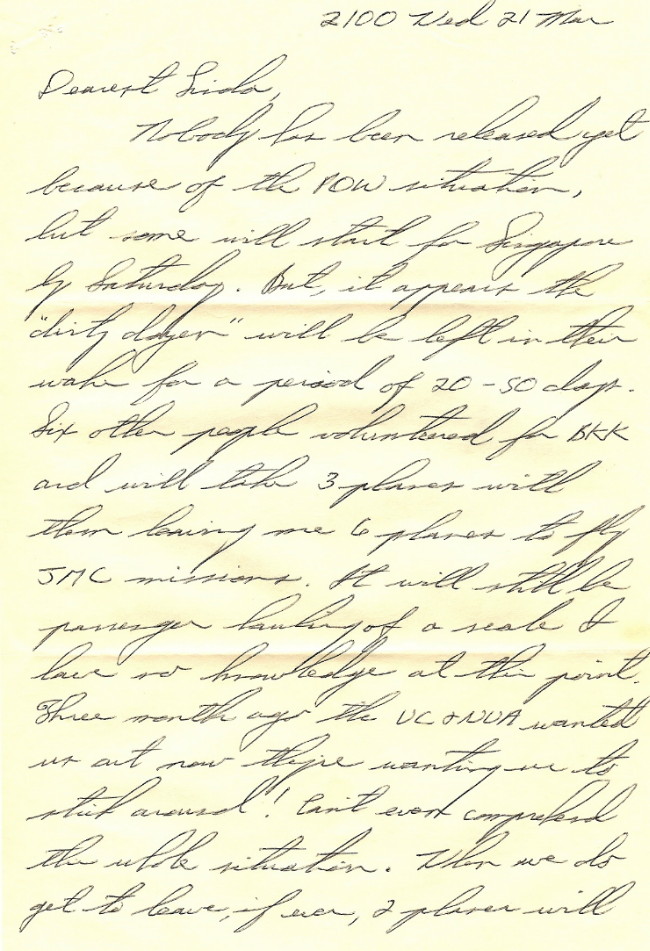 2100 Wed 21 Mar
Dearest Linda,
Nobody has been released yet
because of the POW situation,
but some will start for Singapore
by Saturday. But, it appears the
"dirty dozen" will be left in their
wake for a period of 20-50 days.
Six other people volunteered for BKK
and will take 3 planes with
them leaving me 6 planes to fly
JMC missions. It will still be
passenger hauling of a scale I
have no knowledge at this point.
Three month ago the VC & NVA wanted
us out now they're wanting us to
stick around! Can't even comprehend
the whole situation. When we do
get to leave, if ever, 2 planes will